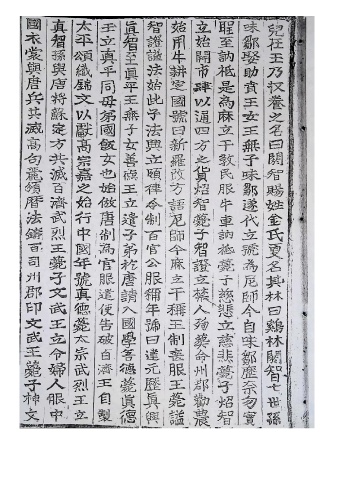 兒在王乃收養之名曰閼智賜姓金氏更名其林曰鷄林閼智七世孫
味鄒娶助賁王女王無子味鄒遂代立號爲尼師今自味鄒歷奈勿實
聖至訥祗是爲麻立干敎民服牛車訥祗薨子慈悲立慈悲薨子炤智
立始開市肆以通四方之貨炤智薨子智證立禁人殉葬命州郡勸農
始用牛耕定國號曰新羅改方語尼師今麻立干稱王制喪服王薨謚
智證謚法始此子法興立頒律令制百官公服稱年號曰建元歷眞興
眞智王至眞平王無子女善德王立遣子弟於唐請入國學善德薨眞德
王立眞平同母弟國飯女也始倣唐制爲官服遣使告破百濟王自製
太平頌織錦文以獻高宗嘉之始行中國年號眞德薨太宗武烈王立
眞智孫與唐將蘇定方共滅百濟武烈王薨子文武王立令婦人服中
國衣裳與唐兵共滅高句麗頒曆法鑄百司州郡印文武王薨子神文